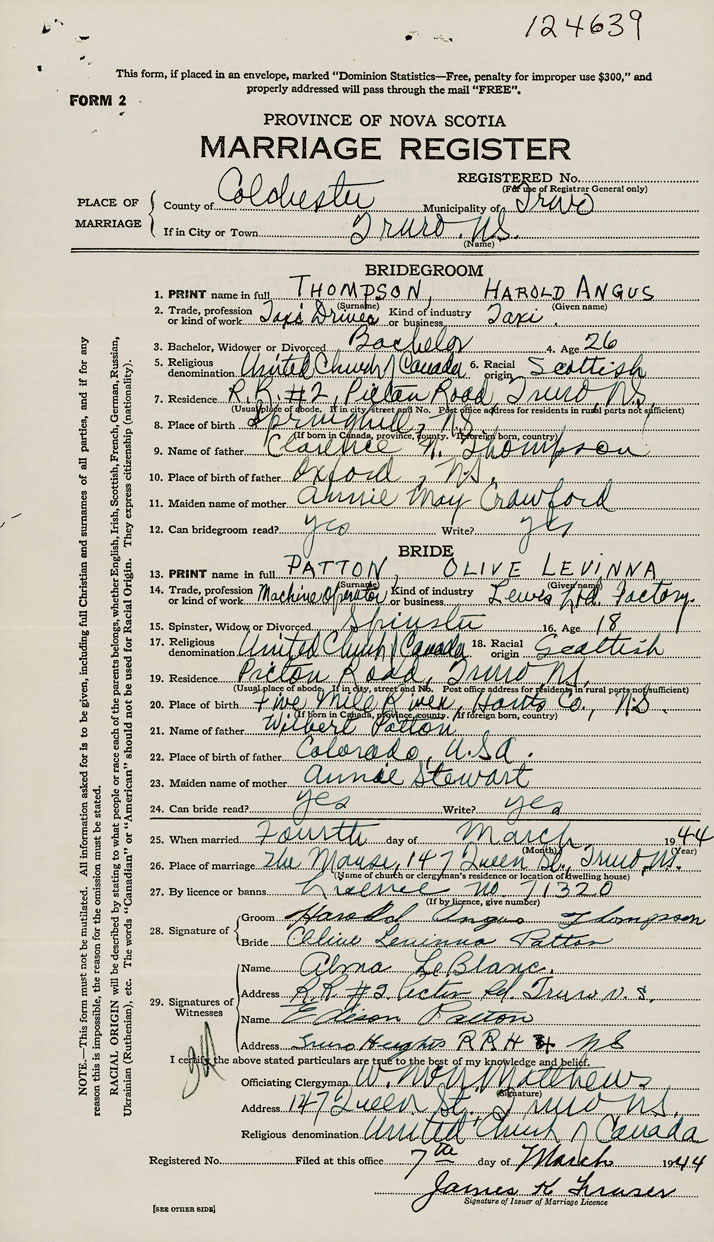 124639
This form, if placed in an envelope, marked "Dominion Statistics—Free, penalty for improper use $300," and
properly addressed will pass through the mail "FREE".
FORM 2
PROVINCE OF NOVA SCOTIA
MARRIAGE REGISTER
REGISTERED No.
(For use of Registrar General only)
PLACE OF MARRIAGE
County of Colchester Municipality of Truro
If in City or Town Truro, N.S.
(Name)
BRIDEGROOM
1. PRINT name in full THOMPSON, HAROLD ANGUS
(Surname) (Given name)
2. Trade, profession or kind of work Taxi Driver Kind of industry or business Taxi.
3. Bachelor, Widower or Divorced Bachelor 4. Age 26
5. Religious denomination United Church of Canada 6. Racial origin Scottish
7. Residence R.R. #2, Pictou Road, Truro, N.S.
(Usual place of abode. If in city, street and No. Post office address for residents in rural parts not sufficient)
8. Place of birth Springhill, N.S.
(If born in Canada, province, county. If foreign born, country)
9. Name of father Clarence N. Thompson
10. Place of birth of father Oxford, N.S.
11. Maiden name of mother Annie May Crawford
12. Can bridegroom read? yes Write? yes
BRIDE
13. PRINT name in full PATTON, OLIVE LEVINNA
(Surname) (Given name)
14. Trade, profession or kind of work Machine Operator Kind of industry or business Lewis Ltd. Factory.
15. Spinster, Widow or Divorced Spinster 16. Age 18
17. Religious denomination United Church of Canada 18. Racial origin Scottish
19. Residence Pictou Road, Truro N.S.
(Usual place of abode. If in city, street and No. Post office address for residents in rural parts not sufficient)
20. Place of birth Five Mile River, Hants Co., N.S.
(If born in Canada, province, county. If foreign born, country)
21. Name of father Wilbert Patton
22. Place of birth of father Colorado, U.S.A.
23. Maiden name of mother Annie Stewart
24. Can bride read? yes Write? yes
25. When married Fourth day of March 1944
(Month) (Year)
26. Place of marriage The Manse, 147 Queen St., Truro N.S.
(Name of church or clergyman's residence or location of dwelling house)
27. By licence or banns Licence No. 71320
(If by licence, give number)
28. Signature of
Groom Harold Angus Thompson
Bride Olive Levinna Patton
29. Signatures of Witnesses
Name Alma LeBlanc.
Address R.R. #2 Pictou Rd. Truro N.S.
Name Edison Patton
Address Truro Heights RRH 4 NS
I certify the above stated particulars are true to the best of my knowledge and belief.
Officiating Clergyman W. McN. Matthews
(Signature)
Address 147 Queen St. Truro N.S.
Religious denomination United Church of Canada
Registered No. Filed at this office 7th day of March 1944
James K Fraser
Signature of Issuer of Marriage Licence
[SEE OTHER SIDE]
NOTE.—This form must not be mutilated. All information asked for is to be given, including full Christian and surnames of all parties, and if for any
reason this is impossible, the reason for the omission must be stated.
RACIAL ORIGIN will be described by stating to what people or race each of the parents belongs, whether English, Irish, Scottish, French, German, Russian,
Ukrainian (Ruthenian), etc. The words "Canadian" or "American" should not be used for Racial Origin. They express citizenship (nationality).